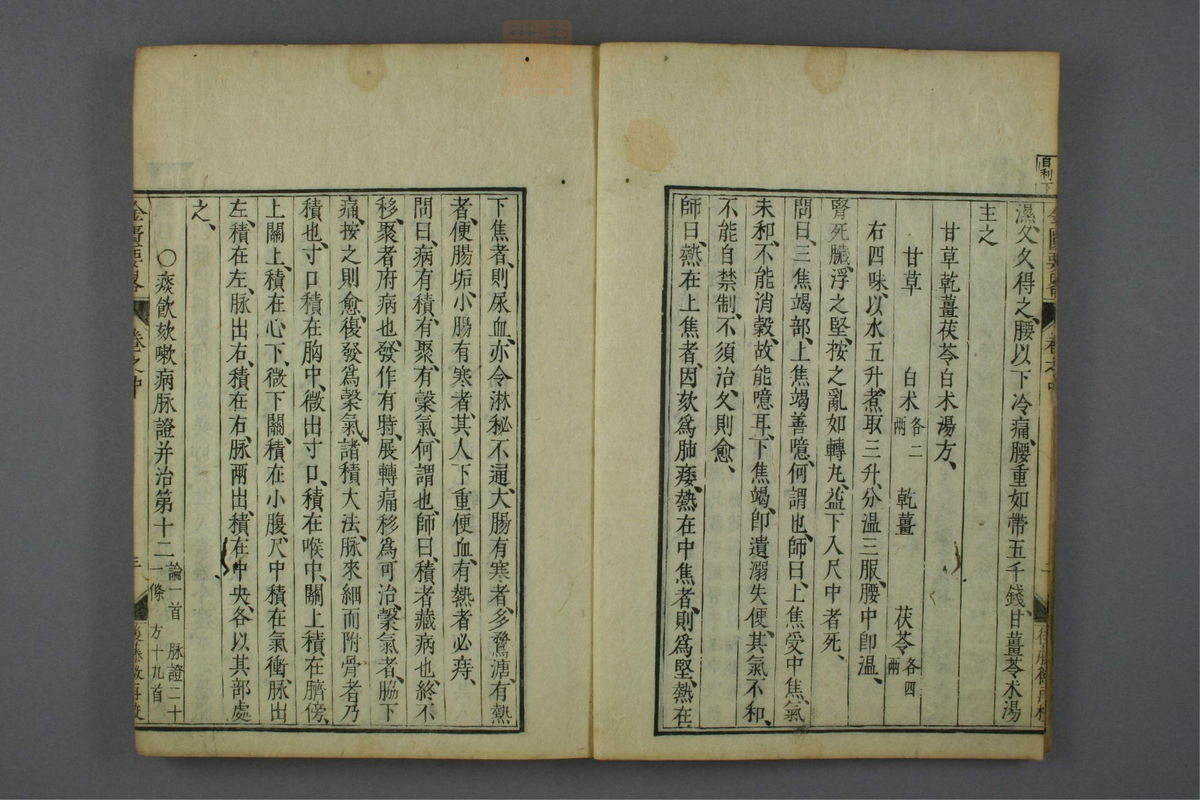 濕久久得之、腰以下冷痛、腰重如帶五千錢、甘薑苓朮湯
主之
甘草乾薑茯苓白朮湯方、
甘草 白朮各二兩 乾薑 茯苓各四兩
右四味、以水五升、煮取三升、分溫三服、腰中即溫、
腎死臟、浮之堅、按之亂如轉丸、益下入尺中者死、
問曰、三焦竭部、上焦竭善噫、何謂也、師曰、上焦受中焦、氣
未和、不能消穀、故能噫耳、下焦竭、卽遺溺失便、其氣不和、
不能自禁制、不須治、久則愈、
師曰、熱在上焦者、因欬爲肺痿、熱在中焦者、則爲堅、熱在
下焦者、則尿血、亦令淋秘不通、大腸有寒者、多鶩溏、有熱
者、便腸垢、小腸有寒者、其人下重便血、有熱者必痔、
問曰、病有積、有聚、有䅽氣、何謂也、師曰、積者藏病也、終不
移、聚者府病也、發作有時、展轉痛移、爲可治、䅽氣者、脇下
痛、按之則愈、復發爲䅽氣、諸積大法、脉來細而附骨者、乃
積也、寸口積在胸中、微出寸口、積在喉中、關上積、在臍傍、
上關上、積在心下、微下關、積在小腹、尺中積在氣衝、脉出
左、積在左、脉出右、積在右、脉兩出、積在中央、各以其部處
之、
○痰飮欬嗽病脉證并治第十二 論一首 脉證二十一條 方十九首
金匱要畧 卷之中